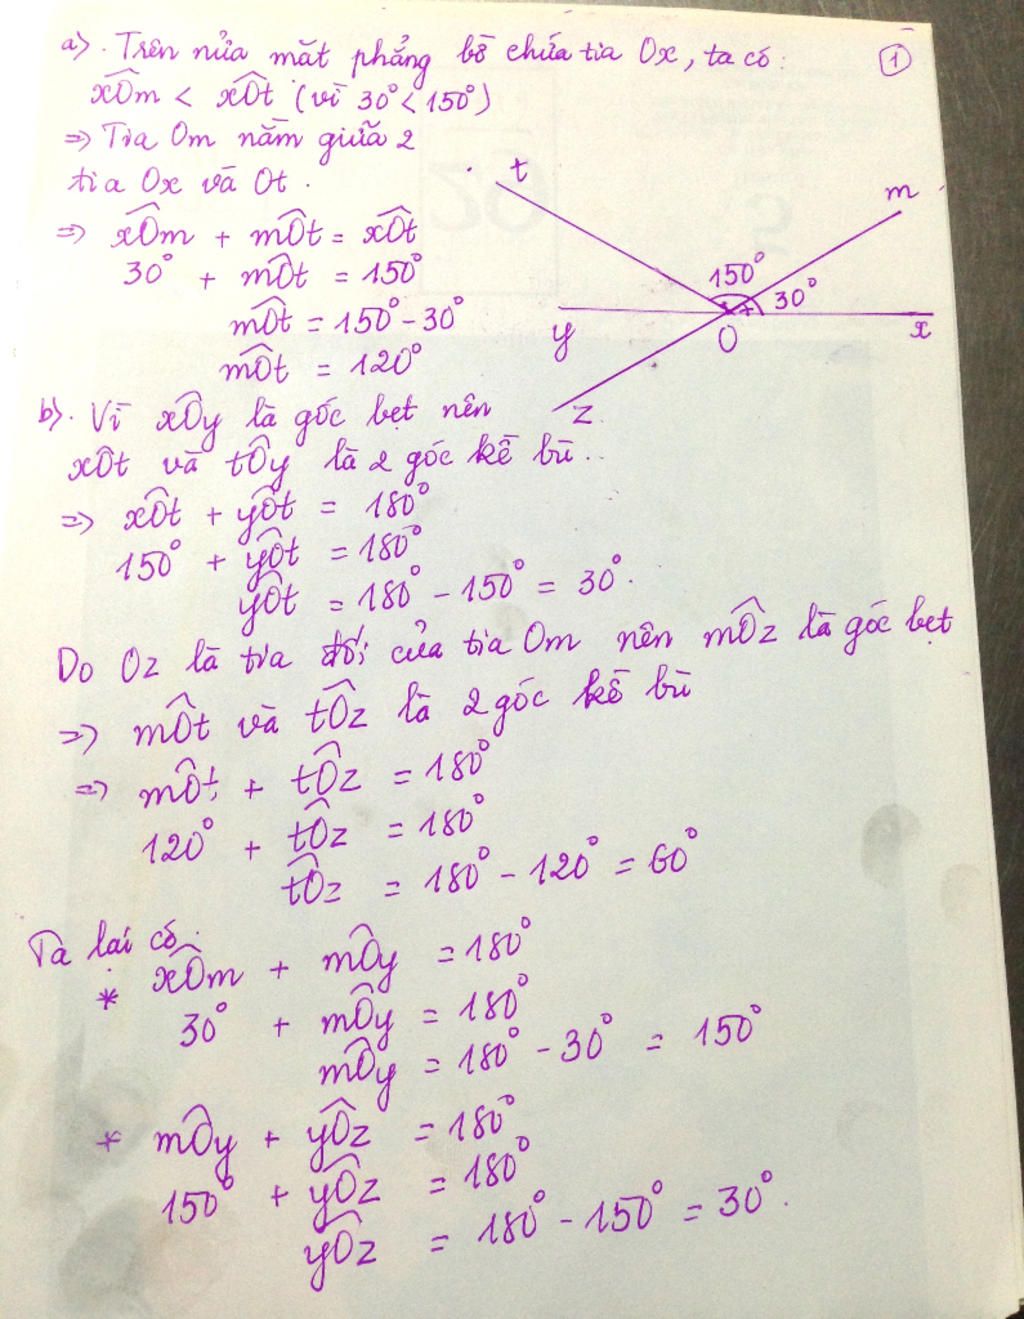 a). Trên nửa mặt phẳng bờ chứa tia Ox, ta có:
①
xÔm < xÔt (vì 30° < 150°)
=> Tia Om nằm giữa 2
tia Ox và Ot.
=> xÔm + mÔt = xÔt
30° + mÔt = 150°
mÔt = 150° - 30°
mÔt = 120°
t
m
150°
30°
y
O
x
z
b). Vì xÔy là góc bẹt nên
xÔt và tÔy là 2 góc kề bù..
=> xÔt + yÔt = 180°
150° + yÔt = 180°
yÔt = 180° - 150° = 30°.
Do Oz là tia đối của tia Om nên mÔz là góc bẹt
=> mÔt và tÔz là 2 góc kề bù
=> mÔt + tÔz = 180°
120° + tÔz = 180°
tÔz = 180° - 120° = 60°
Ta lại có:
* xÔm + mÔy = 180°
30° + mÔy = 180°
mÔy = 180° - 30° = 150°
* mÔy + yÔz = 180°
150° + yÔz = 180°
yÔz = 180° - 150° = 30°.